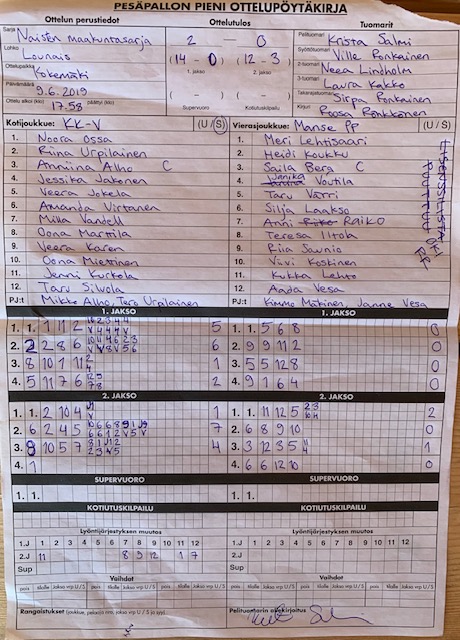 PESÄPALLON PIENI OTTELUPÖYTÄKIRJA
Ottelun perustiedot
Ottelutulos
Tuomarit
Sarja Naisten maakuntasarja
Lohko Lounais
Ottelupaikka Kokemäki
Päivämäärä 9.6.2019
Ottelu alkoi (klo) 17.58 päättyi (klo)
2 - 0
(14 - 0) (12 - 3)
1. jakso 2. jakso
( - ) ( - )
Supervuoro Kotiutuskilpailu
Pelituomari Krista Salmi
Syöttötuomari Ville Ronkainen
2-tuomari Neea Lindholm
3-tuomari Laura Kakko
Takarajatuomari Sirpa Ronkainen
Kirjuri Roosa Rönkkönen
Kotijoukkue: KK-V (U / S)
1. Noora Ossa
2. Riina Urpilainen
3. Anniina Alho C
4. Jessika Jakonen
5. Veera Jokela
6. Amanda Virtanen
7. Milla Vandell
8. Oona Marttila
9. Veera Karen
10. Oona Miettinen
11. Jenni Kurkola
12. Taru Silvola
PJ:t Mikko Alho, Tero Urpilainen
Vierasjoukkue: Manse PP (U / S)
1. Meri Lehtisaari
2. Heidi Koukku
3. Saila Berg C
4. Janika Voutila
5. Taru Värri
6. Silja Laakso
7. Anni Raiko
8. Teresa Iltola
9. Riia Saunio
10. Viivi Koskinen
11. Kukka Lehto
12. Aada Vesa
PJ:t Kimmo Mäkinen, Janne Vesa
1. JAKSO
1. 1. 1 11 2 5
2. 2 2 8 6 6
3. 8 10 1 11 1
4. 5 11 7 6 2
1. JAKSO
1. 1. 5 6 8 0
2. 9 9 11 2 0
3. 5 5 12 8 0
4. 9 1 6 4 0
2. JAKSO
1. 1. 2 10 4 1
2. 6 2 4 5 7
3. 8 10 5 7 4
4. 1
2. JAKSO
1. 1. 11 12 5 2
2. 6 8 9 10 0
3. 3 12 3 5 1
4. 6 6 12 10 0
SUPERVUORO
1. 1.
SUPERVUORO
1. 1.
KOTIUTUSKILPAILU
KOTIUTUSKILPAILU
Lyöntijärjestyksen muutos
1.J 1 2 3 4 5 6 7 8 9 10 11 12
2.J 11 8 9 12 1 7
Sup
Lyöntijärjestyksen muutos
1.J 1 2 3 4 5 6 7 8 9 10 11 12
2.J
Sup
Vaihdot
pois tilalle Jakso vrp U / S pois tilalle Jakso vrp U / S
Vaihdot
pois tilalle Jakso vrp U / S pois tilalle Jakso vrp U / S
Rangaistukset (joukkue, pelaaja nro, jakso vrp U / S ja syy)
Pelituomarin allekirjoitus